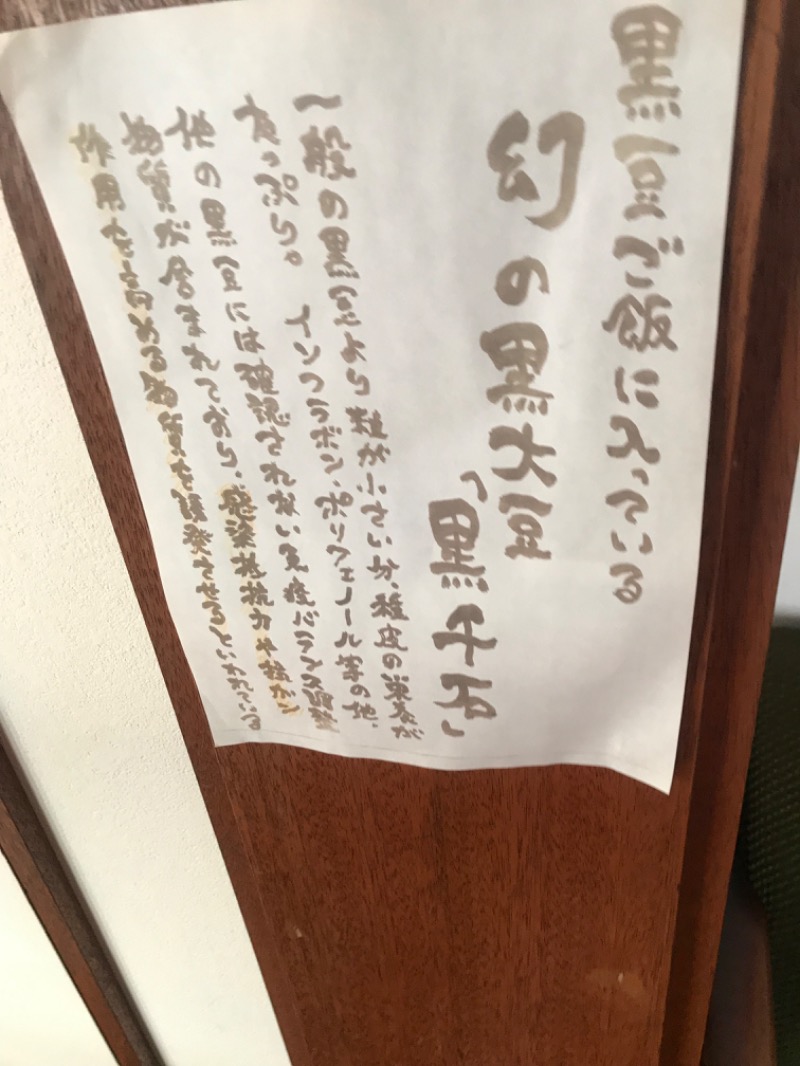 黒豆ご飯に入っている
幻の黒大豆
「黒千石」
一般の黒豆より粒が小さい分、種皮の栄養が
たっぷり。イソフラボン、ポリフェノール等の他、
他の黒豆には確認されない免疫バランス調整
物質が含まれており、感染抵抗力や抗ガン
作用を高める物質を誘発させるといわれている